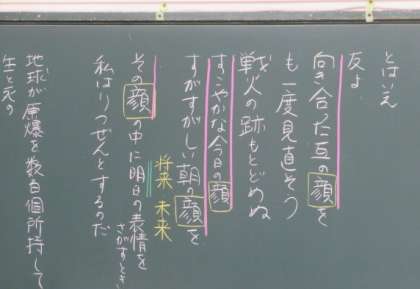 とはいえ
友よ
向き合った互の顔を
も一度見直そう
戦火の跡もとどめぬ
すこやかな今日の顔
すがすがしい朝の顔を
将来 未来
その顔の中に明日の表情を
さがすとき
私はりつぜんとするのだ
地球が原爆を数百個所持して
生と死の